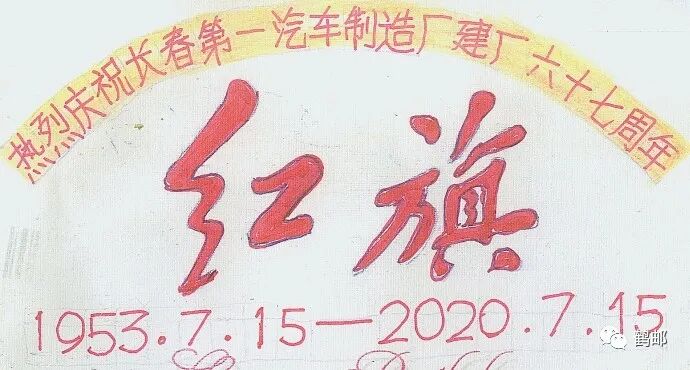 热烈庆祝长春第一汽车制造厂建厂六十七周年
红旗
1953.7.15—2020.7.15
鹤邮